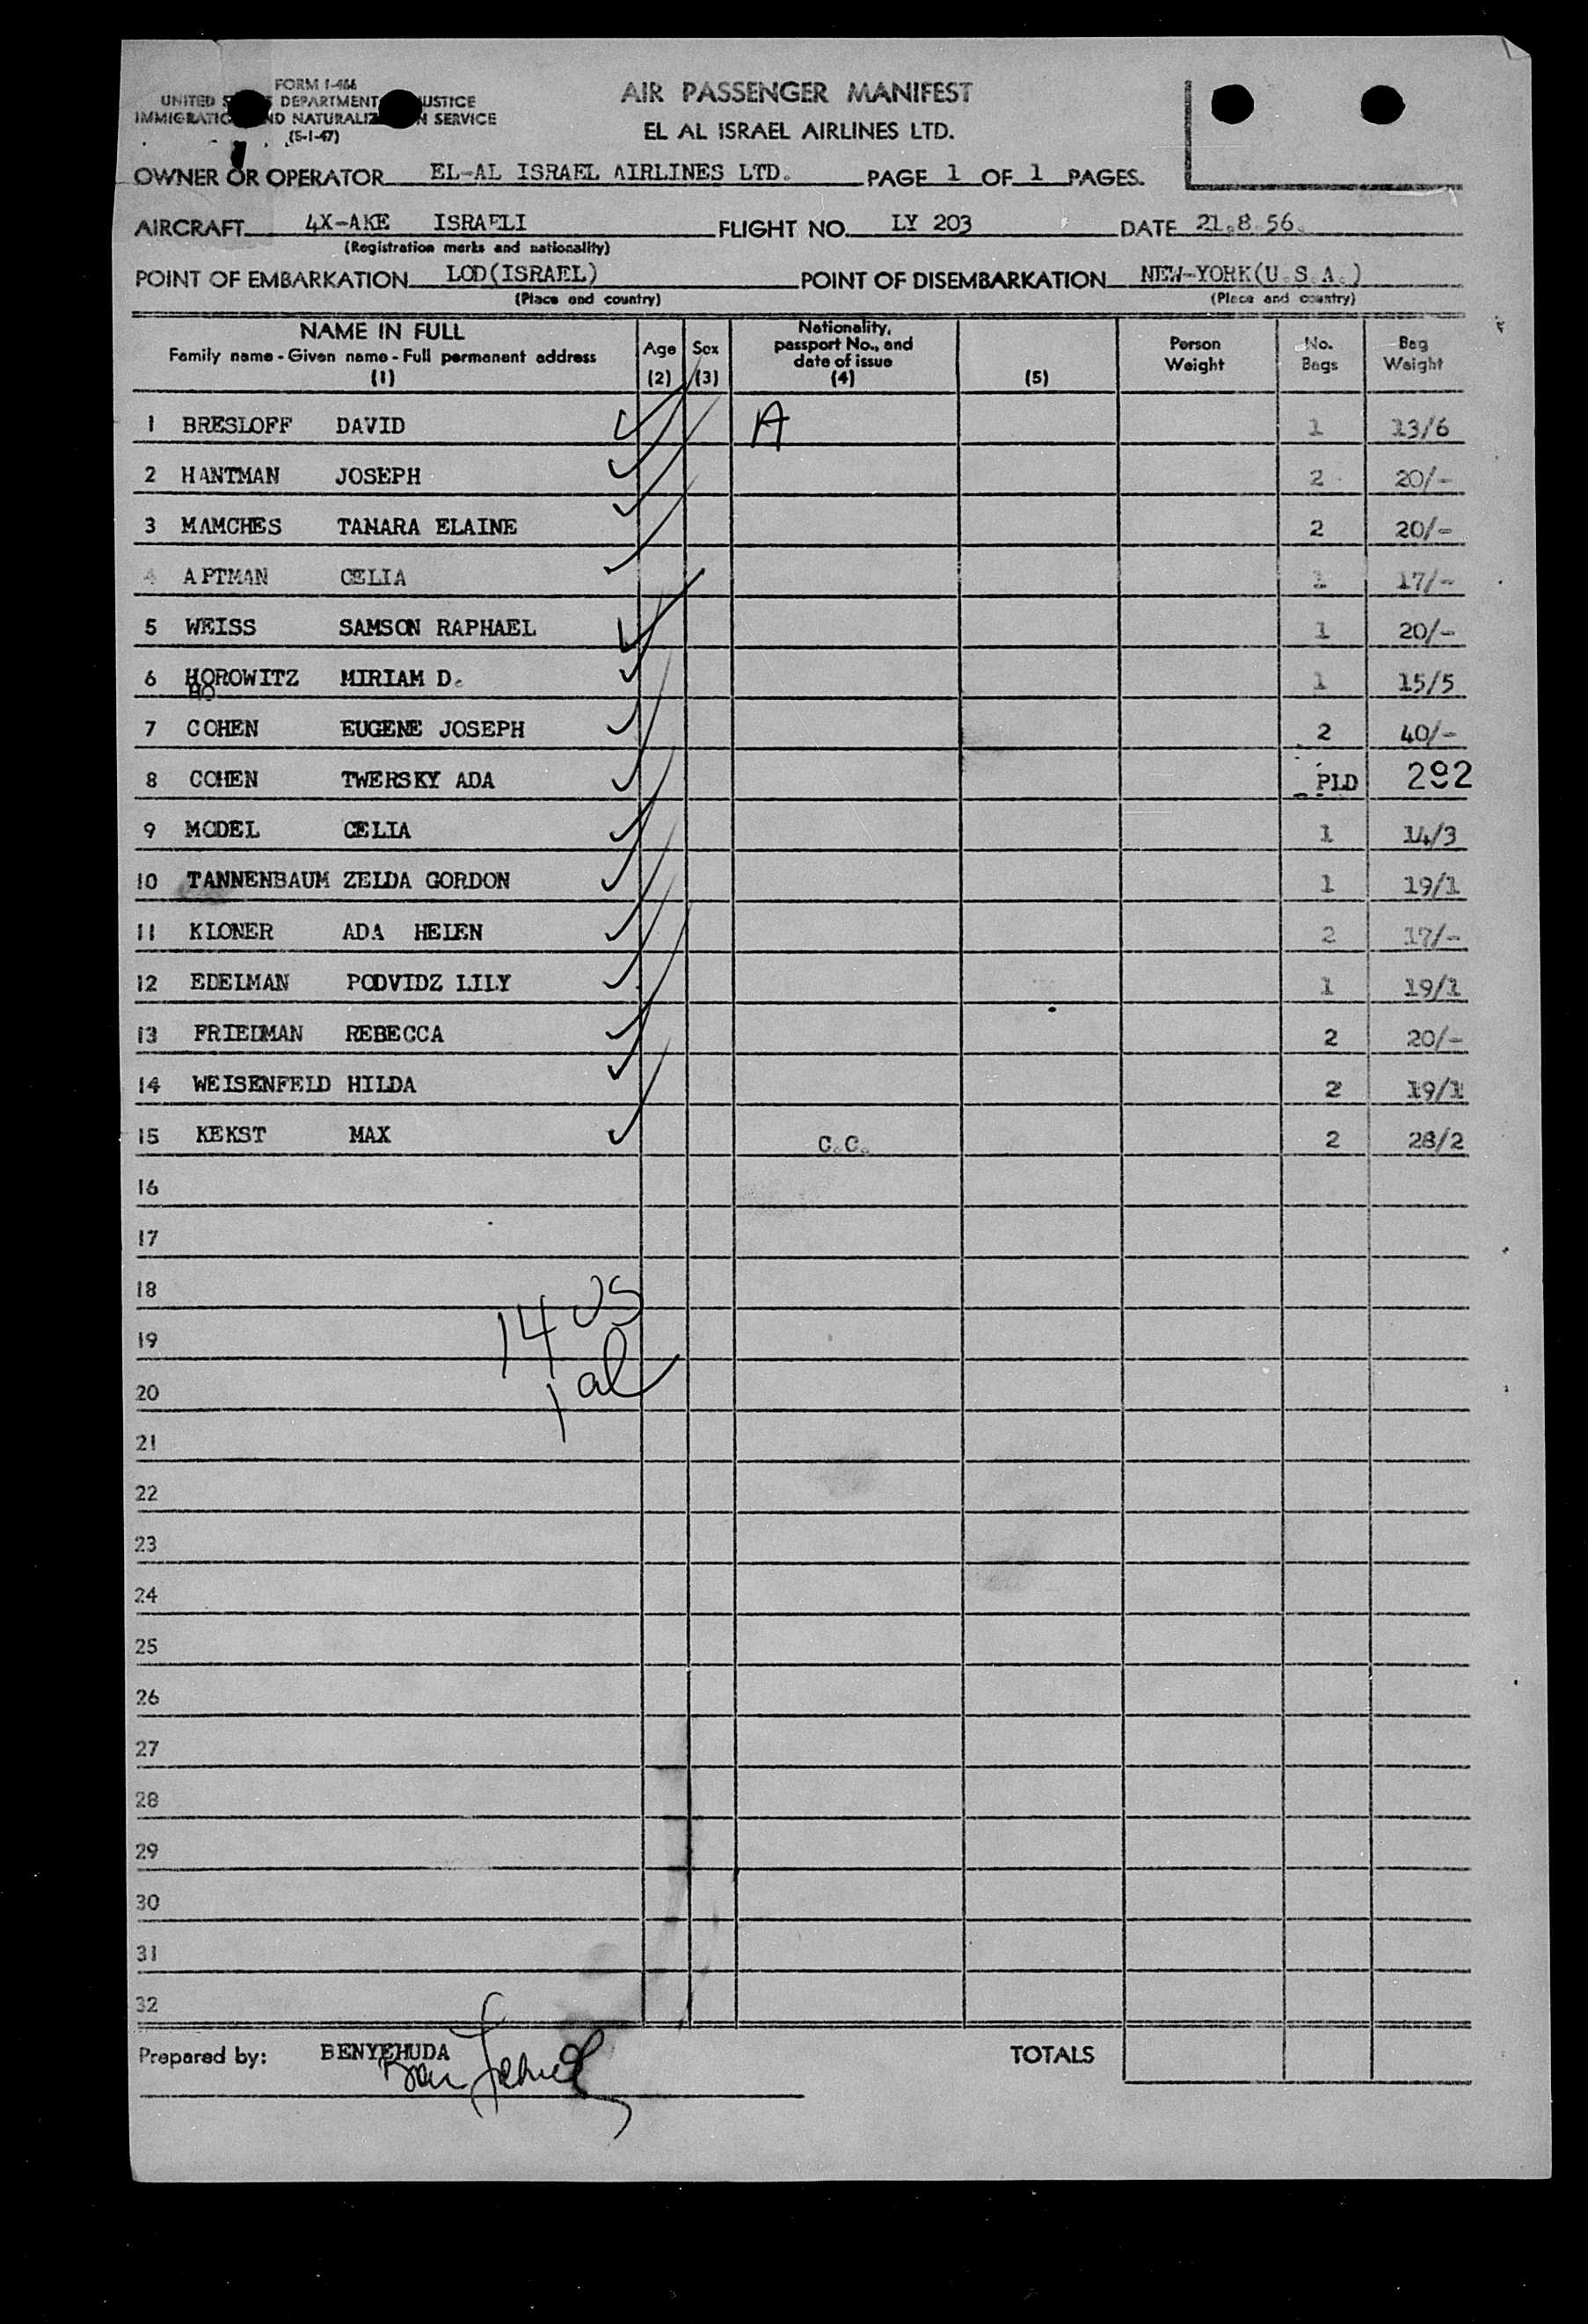 FORM I-466
UNITED S DEPARTMENT USTICE
IMMIGRATIO ND NATURALIZ N SERVICE
(5-1-47)
AIR PASSENGER MANIFEST
EL AL ISRAEL AIRLINES LTD.
OWNER OR OPERATOR EL-AL ISRAEL AIRLINES LTD. PAGE 1 OF 1 PAGES.
AIRCRAFT 4X-AKE ISRAELI FLIGHT NO. LY 203 DATE 21.8.56.
(Registration marks and nationality)
POINT OF EMBARKATION LOD(ISRAEL) POINT OF DISEMBARKATION NEW-YORK(U.S.A.)
(Place and country) (Place and country)
NAME IN FULL
Family name - Given name - Full permanent address
(1)
Age
(2)
Sex
(3)
Nationality,
passport No., and
date of issue
(4)
(5)
Person
Weight
No.
Bags
Bag
Weight
1 BRESLOFF DAVID A 1 13/6
2 HANTMAN JOSEPH 2 20/-
3 MAMCHES TAMARA ELAINE 2 20/-
4 APTMAN CELIA 1 17/-
5 WEISS SAMSON RAPHAEL 1 20/-
6 HOROWITZ MIRIAM D. 1 15/5
HO
7 COHEN EUGENE JOSEPH 2 40/-
8 COHEN TWERSKY ADA PLD 292
9 MODEL CELIA 1 14/3
10 TANNENBAUM ZELDA GORDON 1 19/1
11 KLONER ADA HELEN 2 17/-
12 EDELMAN PODVIDZ LILY 1 19/1
13 FRIEDMAN REBECCA 2 20/-
14 WEISENFELD HILDA 2 19/1
15 KEKST MAX C.C. 2 28/2
16
17
18
14 US
19
1 al
20
21
22
23
24
25
26
27
28
29
30
31
32
Prepared by: BENYEHUDA TOTALS
Ben Jehuda